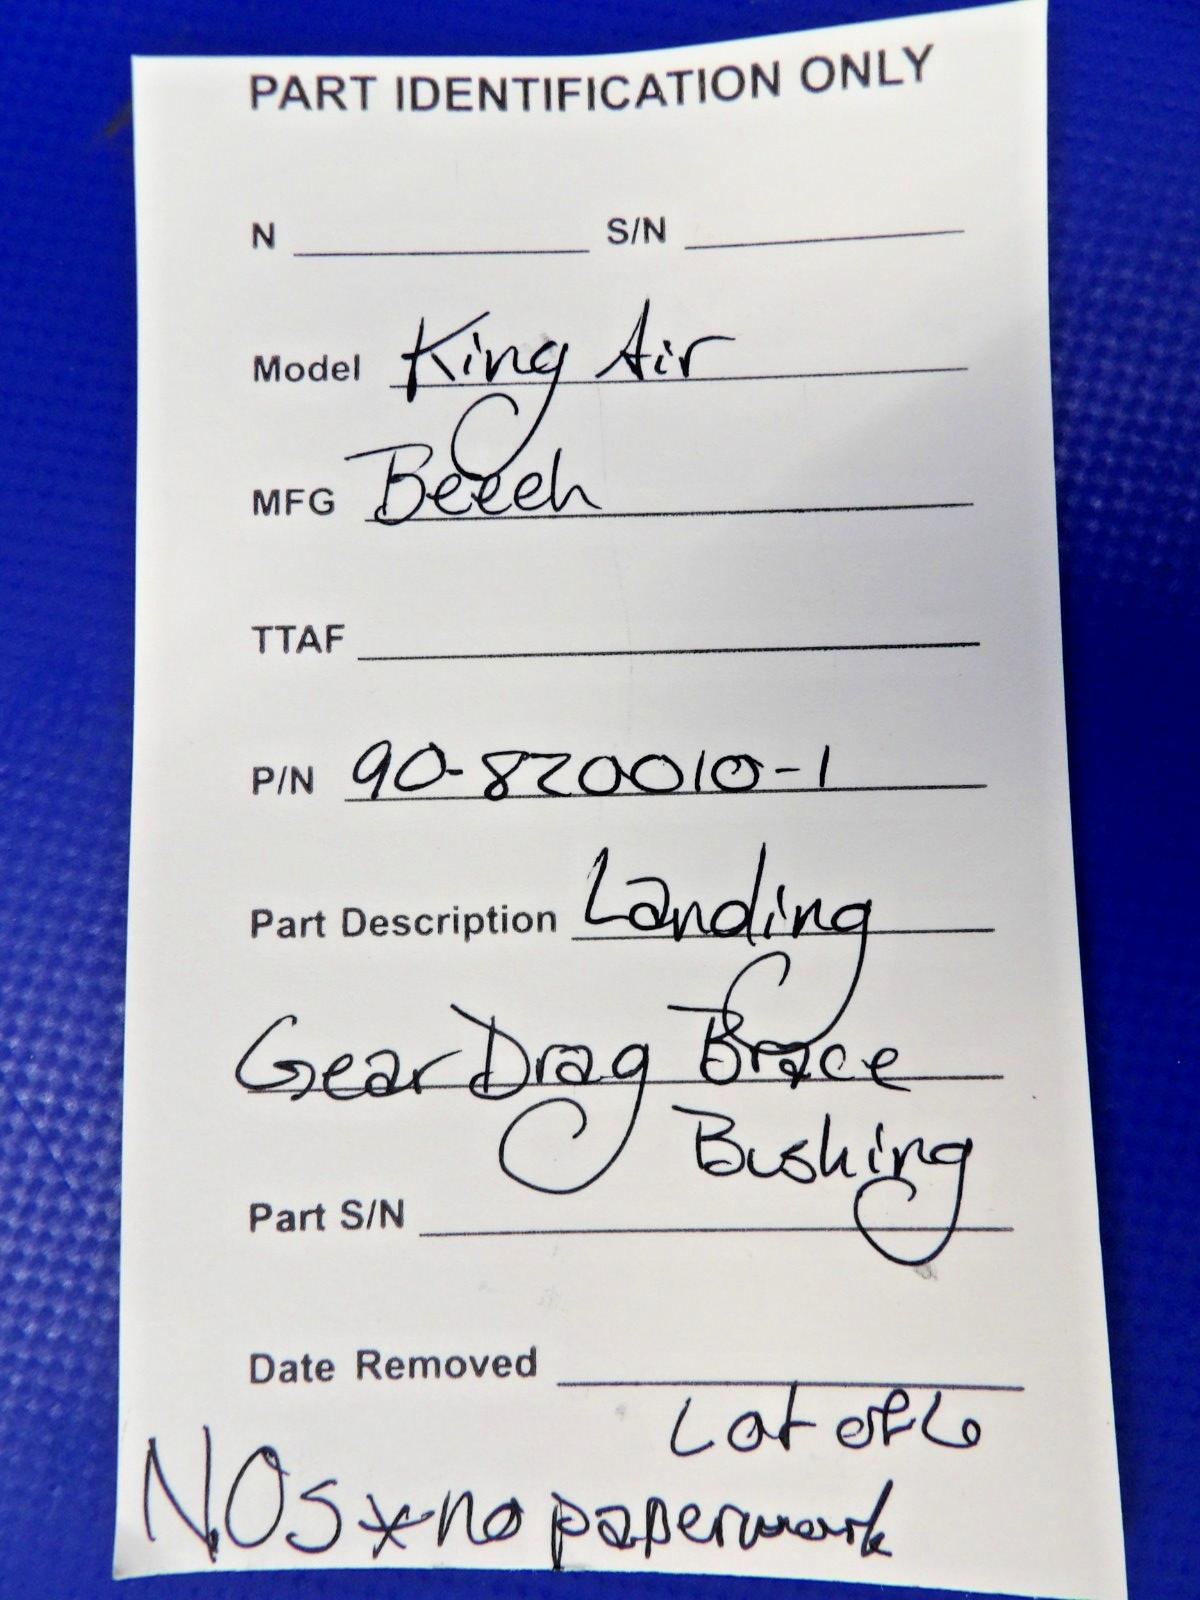 PART IDENTIFICATION ONLY
N S/N
Model King Air
MFG Beech
TTAF
P/N 90-820010-1
Part Description Landing
Gear Drag Brace
Bushing
Part S/N
Date Removed
Lot of 6
NOS * no paperwork